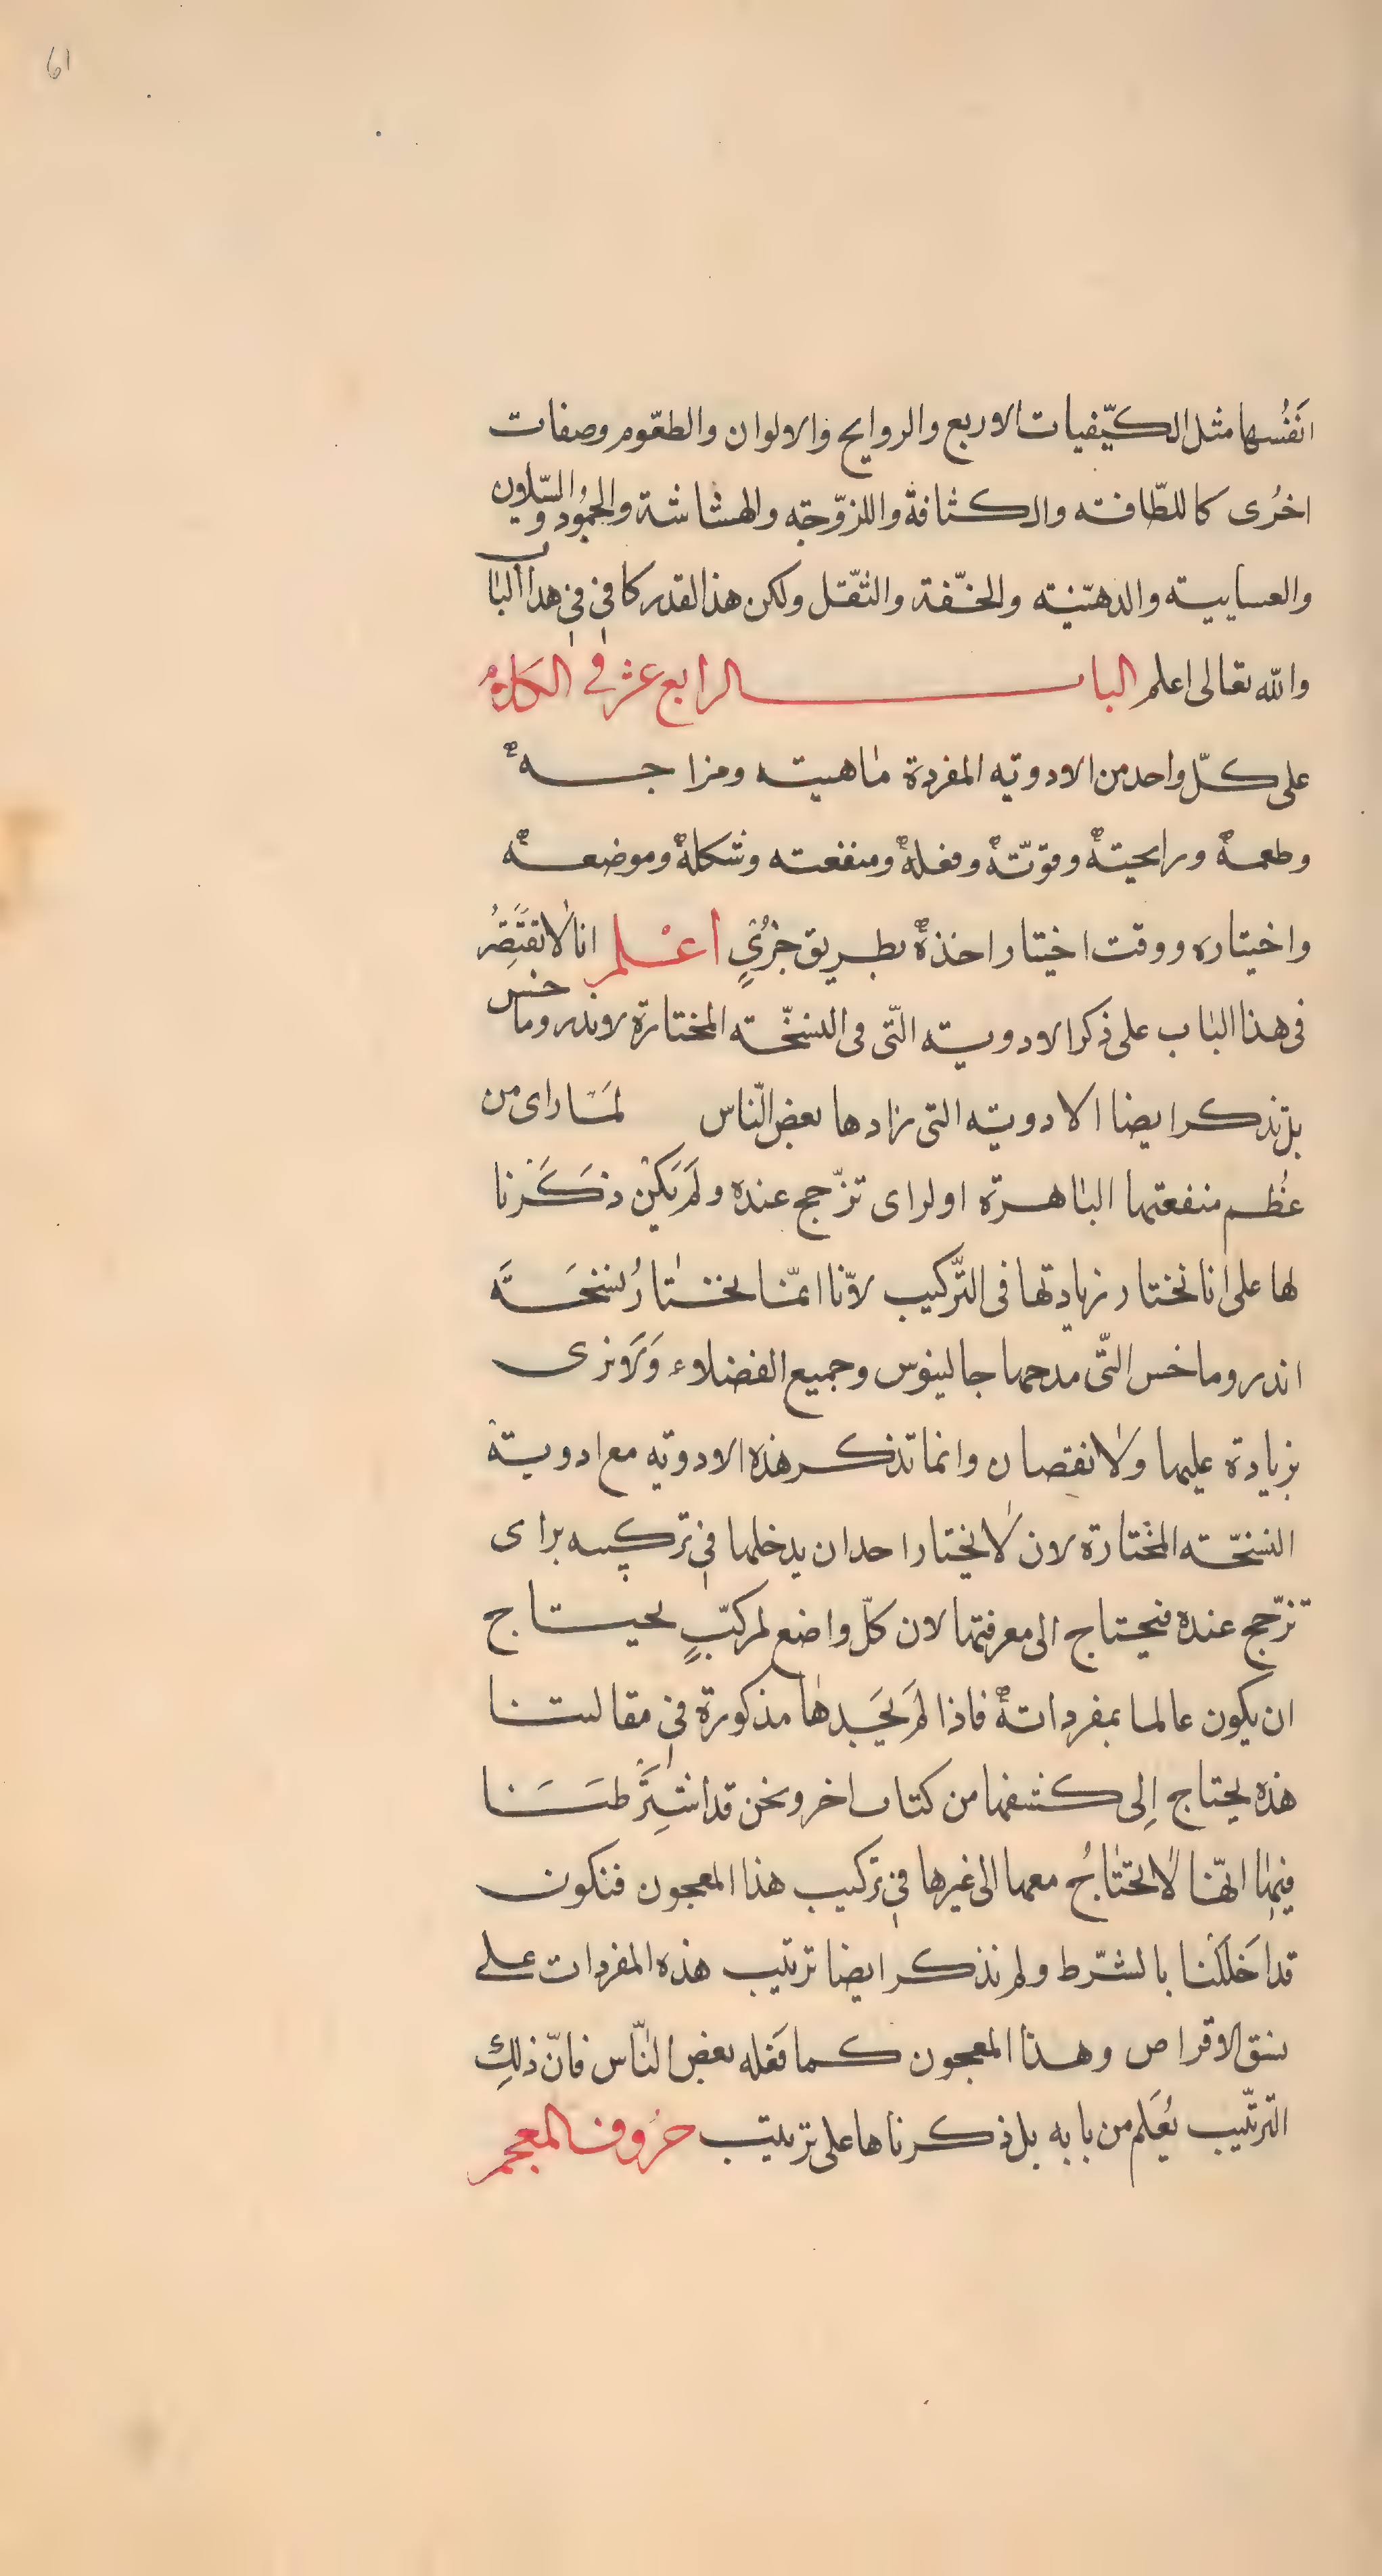 61
انفُسها مثل الكيّفيات الاربع والروايح والالوان والطعّوم وصفات
اخرُى كاللطّافته والكثافة واللزوّجته والهشاشة والجمُود والسّلاون
والعسابيته والدهنيّته والخفّة والثقّل ولكن هذا القدر كافى فى هذا الباب
والله تعالى اعلم الباب الرابع عشر فى الكلام
على كلّ واحد من الادوتيه المفردة ماهيته ومزاجه
وطعمهٔ ورايحيتهٔ وقوّتهٔ وفعلهٔ ومنفعته وشكلهٔ وموضعه
واختياره ووقت اختيار اخذهٔ بطريق جزئٍ اعْلم انا لا نقتَصِرُ
فى هذا الباب على ذكر الادويته التّى فى النسخّته المختارة لاندروماخس
بل نذكر ايضا الادويته التى زادها بعض النّاس لمَا راى من
عُظم منفعتها الباهرة او لراى ترّجح عنده ولَم يَكنْ ذكَرْنا
لها على انا نختار زيادتها فى الترّكيب لانّا انمّا نختارُ نسخَتَه
اندروماخس التّى مدحها جالينوس وجميع الفضلاء وَلاَ نرى
بزيادة عليها ولا نقصان وانما نذكر هذه الادوتيه مع ادويتهٔ
النسخّته المختارة لان لا يختار احد ان يدخلها فى تركيبه براى
ترّجح عنده فيحتاج الى معرفتها لان كلّ واضع لمركبٍّ يحيتاج
ان يكون عالما بمفرداتهٔ فاذا لمَ يَجدها مذكورة فى مقالتنا
هذه يحتاج اِلى كشفها من كتاب اخر ونحن قد اشتِرَطنا
فيها انهّا لا نحتاجُ معها الى غيرها فى تركيب هذا المعجون فنكون
قد اَخلَلْنا بالشّرط ولم نذكر ايضا ترتيب هذه المفردات على
نسق الاقراص وهذا المعجون كما فَعله بعض النّاس فانّ ذلِك
الترتّيب يُعَلم من بابه بل ذكرناها على ترتيب حرُوف المعجم